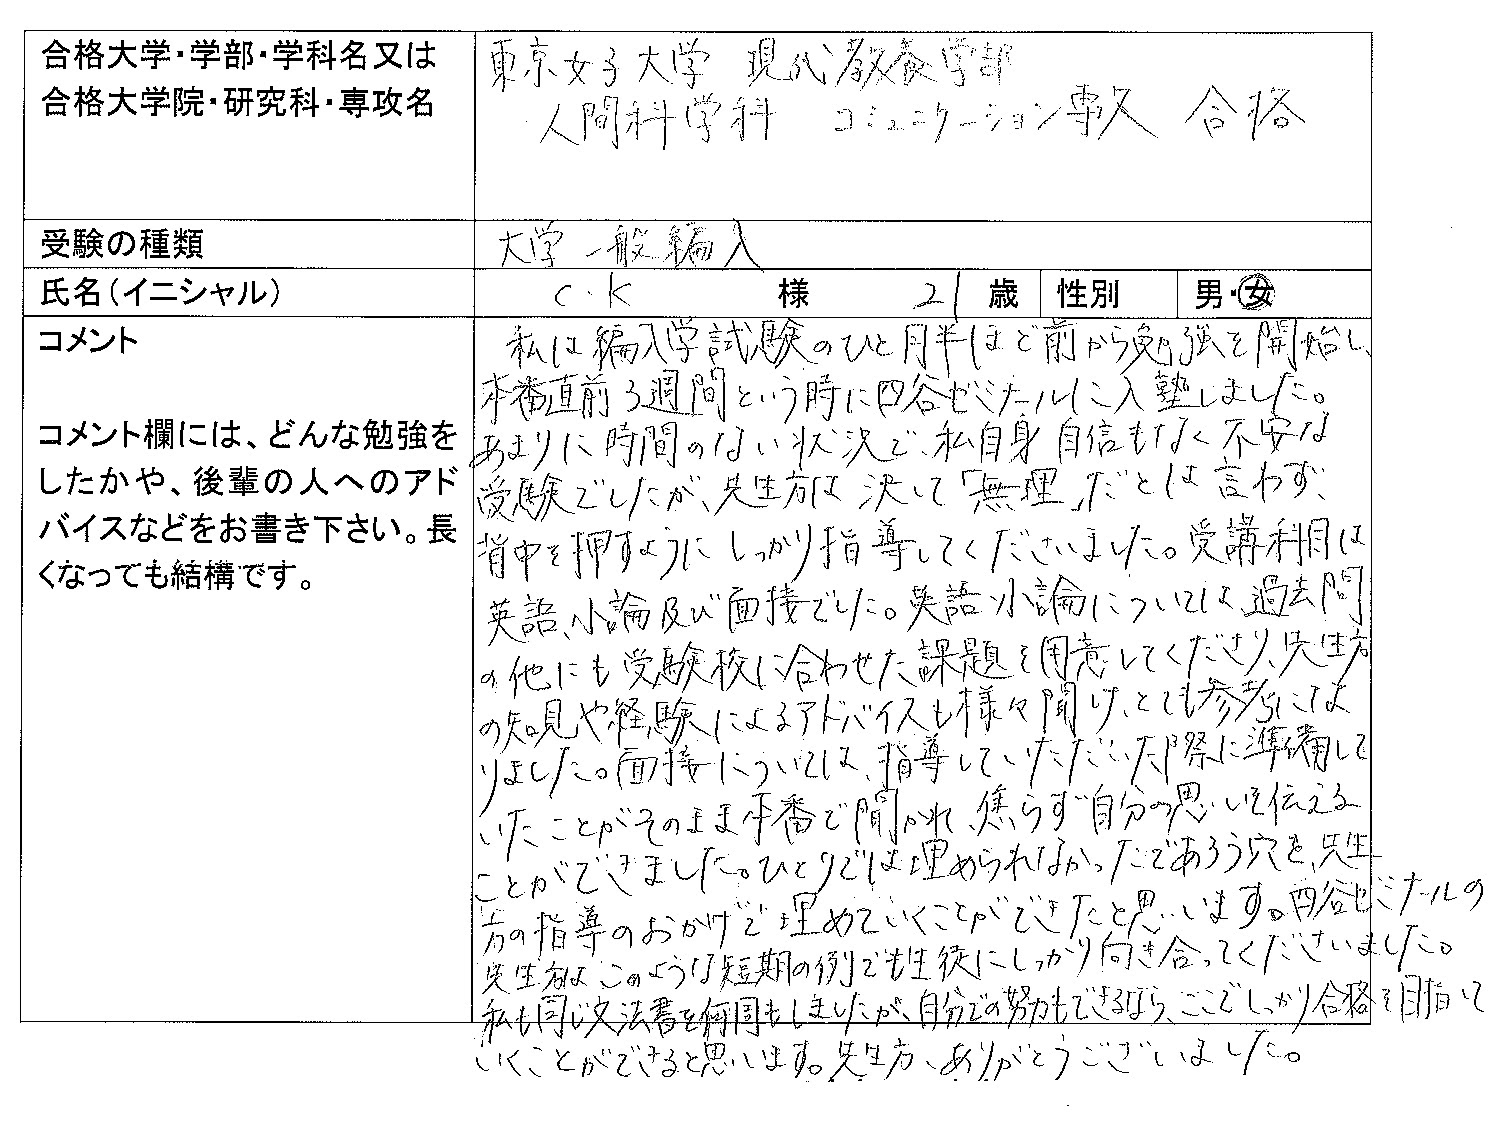 合格大学・学部・学科名又は
合格大学院・研究科・専攻名
東京女子大学 現代教養学部
人間科学科 コミュニケーション専攻 合格
受験の種類
大学一般編入
氏名(イニシャル)
C・K 様 21歳 性別 男・女
コメント
コメント欄には、どんな勉強を
したかや、後輩の人へのアド
バイスなどをお書き下さい。長
くなっても結構です。
私は編入学試験のひと月半ほど前から勉強を開始し、
本番直前3週間という時に四谷ゼミナールに入塾しました。
あまりに時間のない状況で、私自身自信もなく不安な
受験でしたが、先生方は決して「無理」だとは言わず、
背中を押すようにしっかり指導してくださいました。受講科目は
英語、小論及び面接でした。英語・小論については、過去問
の他にも受験校に合わせた課題を用意してくださり、先生方
の知見や経験によるアドバイスも様々聞け、とても参考にな
りました。面接については、指導していただいた際に準備して
いたことがそのまま本番で聞かれ、焦らず自分の思いを伝える
ことができました。ひとりでは埋められなかったであろう穴を、先生
方の指導のおかげで埋めていくことができたと思います。四谷ゼミナールの
先生方は、このような短期の例でも生徒にしっかり向き合ってくださいました。
私も同じ文法書を何周もしましたが、自分での努力もできるなら、ここでしっかり合格を目指して
いくことができると思います。先生方、ありがとうございました。